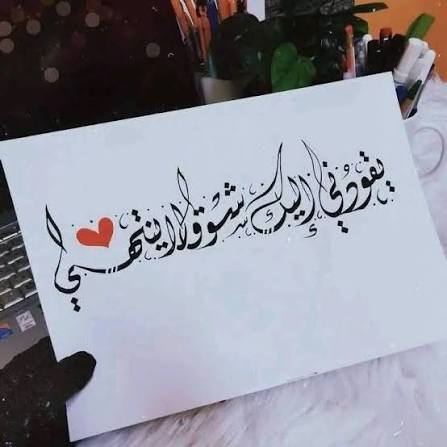 يقودُني إليك شوقٌ لا ينتهي